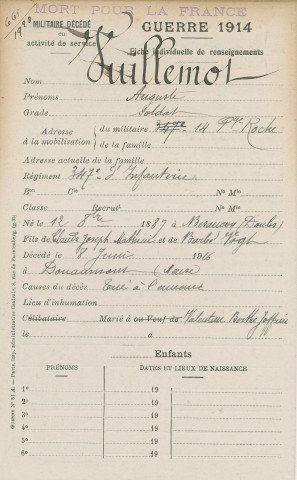 MORT POUR LA FRANCE
MILITAIRE DÉCÉDÉ
en
activité de service
GUERRE 1914
Fiche individuelle de renseignements
Nom Vuillemot
Prénoms Auguste
Grade Soldat
Adresse à la mobilisation { du militaire 347e 14 Pge Roche
de la famille
Adresse actuelle de la famille
Régiment 347e d'Infanterie
Bon Cie No Mle
Classe Recrut No Mle
Né le 12 8bre 1887 à Besançon (Doubs)
Fils de Claude Joseph Mathieu et de Barbe Vogt
Décédé le 8 Juin 1916
à Douaumont (Meuse)
Causes du décès Tué à l'ennemi
Lieu d'inhumation
Célibataire Marié à ou Veuf de Valentine Berthe Joffrin
le à
Enfants
PRÉNOMS DATES ET LIEUX DE NAISSANCE
1° 19
2° 19
3° 19
4° 19
5° 19
6° 19